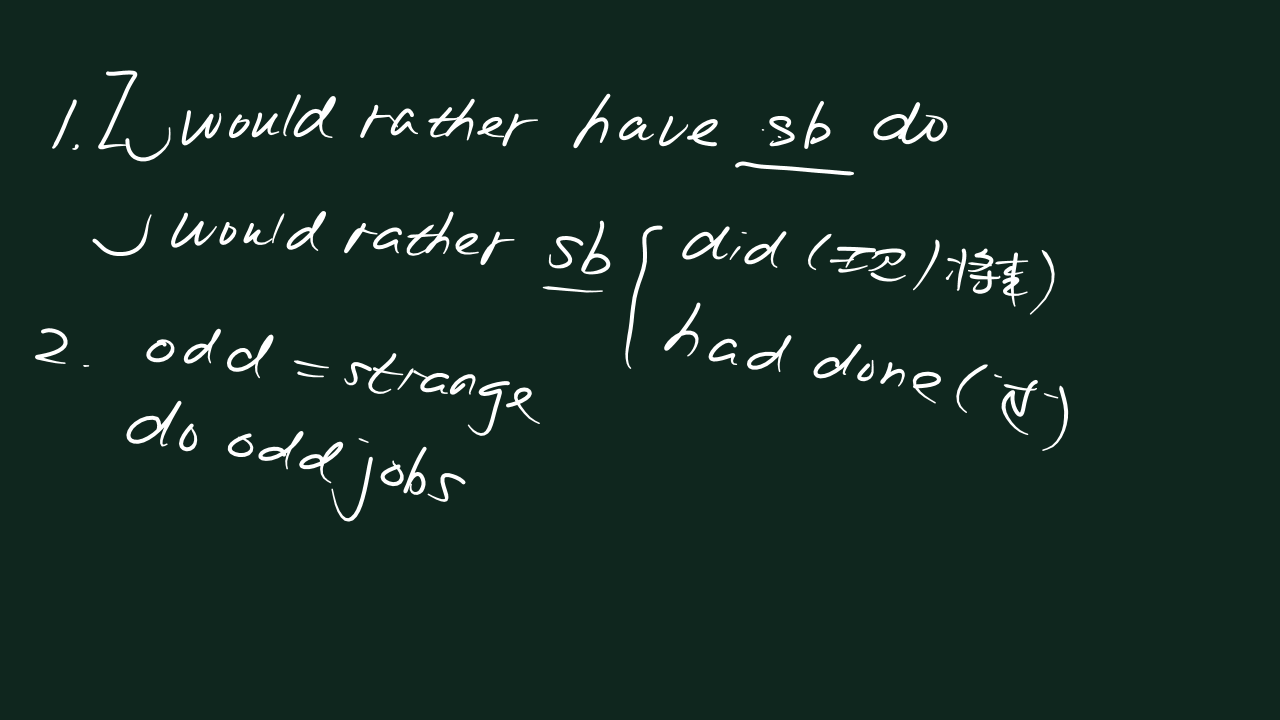 1. would rather have sb do
would rather sb { did (现)将来)
had done (过)
2. odd = strange
do odd jobs